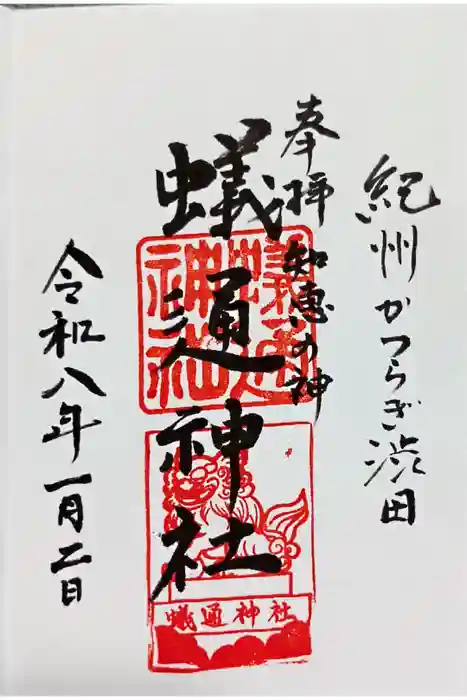 紀州かつらぎ渋田
奉拝 知恵の神
蟻通神社
令和八年一月二日
蟻通神社
蟻通神社